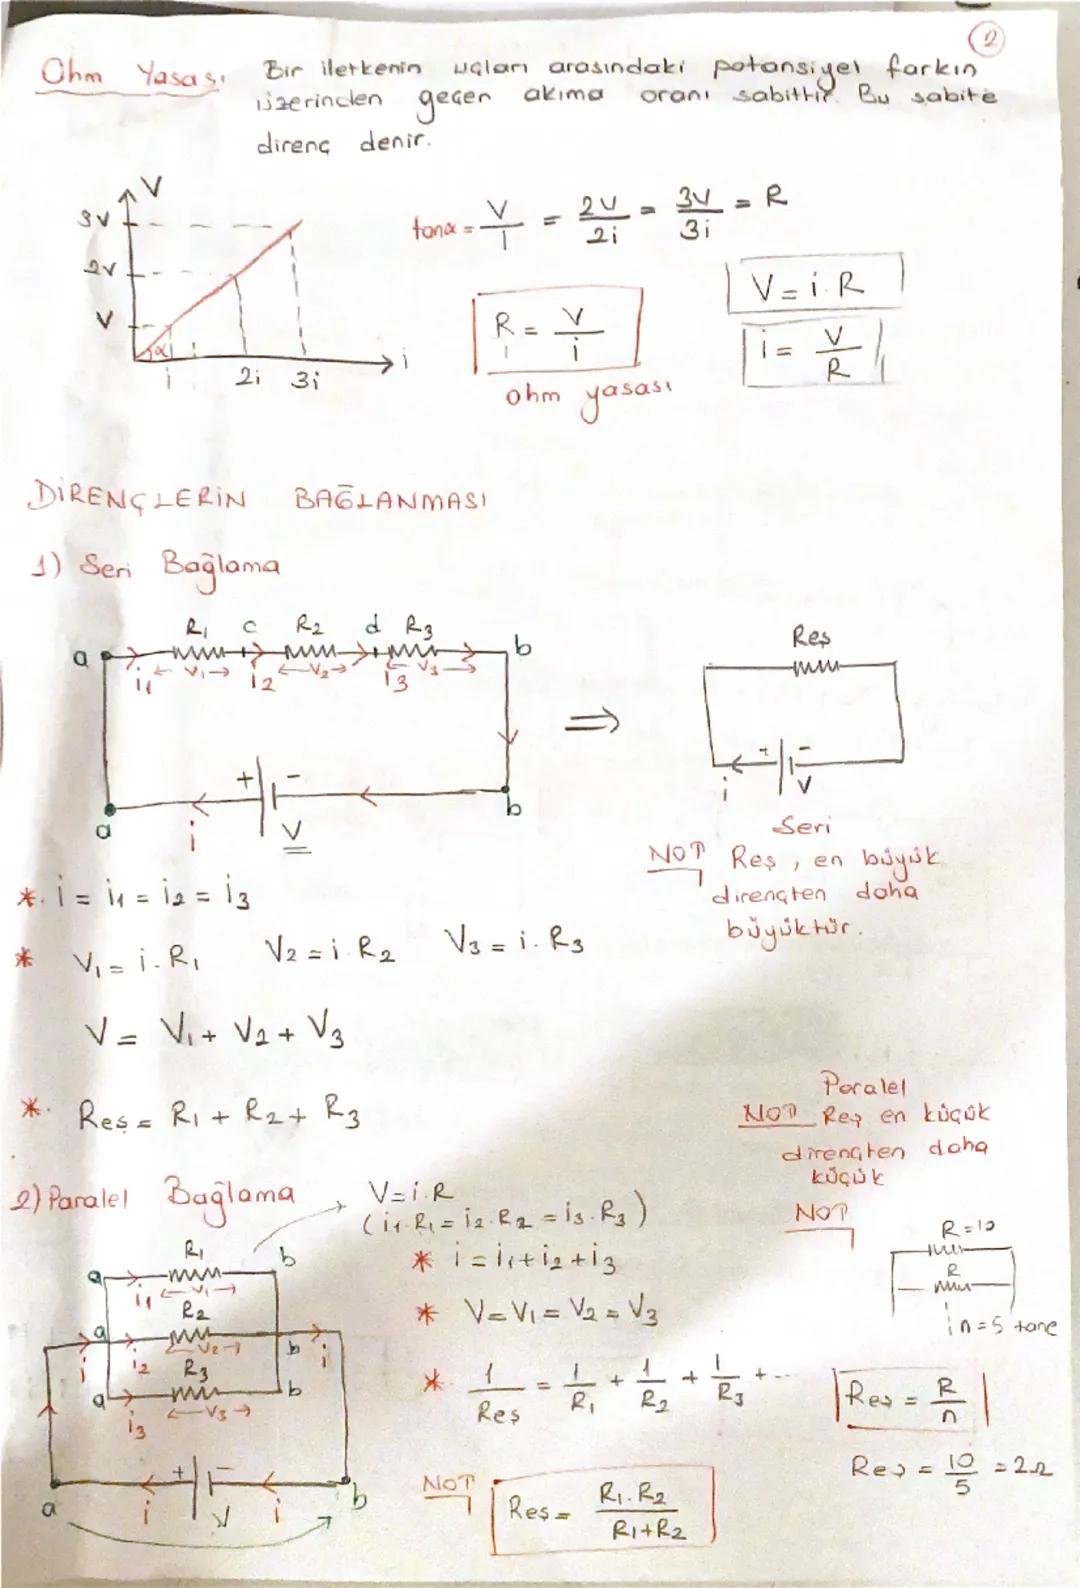 2
Ohm Yasası Bir iletkenin uçları arasındaki potansiyel farkın
üzerinden geçen akıma oranı sabittir. Bu sabite
direnç denir.
V
3V
2V
V
α
i 2i 3i
i
tanα = V/i = 2V/2i = 3V/3i = R
R = V/i
ohm yasası
V = i.R
i = V/R
DİRENÇLERİN BAĞLANMASI
1) Seri Bağlama
R1 c R2 d R3
a b
i1 V1 i2 V2 i3 V3
+ -
a i V b
⇒
Reş
+ -
i V
Seri
NOT Reş, en büyük
dirençten daha
büyüktür.
*. i = i1 = i2 = i3
* V1 = i.R1 V2 = i.R2 V3 = i.R3
V = V1 + V2 + V3
*. Reş = R1 + R2 + R3
Paralel
NOT Reş en küçük
dirençten daha
küçük
2) Paralel Bağlama
V = i.R
(i1.R1 = i2.R2 = i3.R3)
* i = i1 + i2 + i3
* V = V1 = V2 = V3
*. 1/Reş = 1/R1 + 1/R2 + 1/R3 + ...
NOT Reş = R1.R2/R1+R2
R1
a i1 V1 b
R2
a i2 V2 b
i i
R3
a i3 V3 b
+ -
a i V i b
NOT
R=10
R
n=5 tane
Reş = R/n
Reş = 10/5 = 2Ω